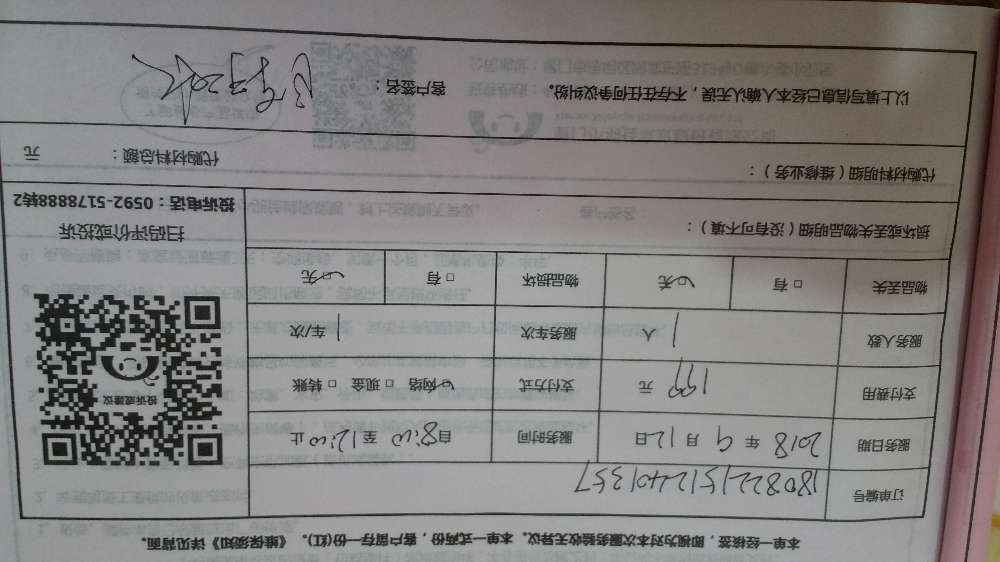 本单一经核签，即视为对本次服务验收无异议。本单一式两份，客户留存一份(红)。《维保须知》详见背面。
订单编号 1808221512401357
服务日期 2018 年 9 月 12 日 服务时间 自 8:00 至 12:00 止
支付费用 199 元 支付方式 ☑网络 □ 现金 □ 转账
服务人数 1 人 服务车次 1 车/次
物品丢失 □ 有 ☑无 物品损坏 □ 有 ☑无
投诉或建议
扫码评价或投诉
投诉电话：0592-5178888转2
损坏或丢失物品明细（没有可不填）：
代购材料明细（维修业务）： 代购材料总额： 元
以上填写信息已经本人确认无误，不存在任何争议纠纷。 客户签名：